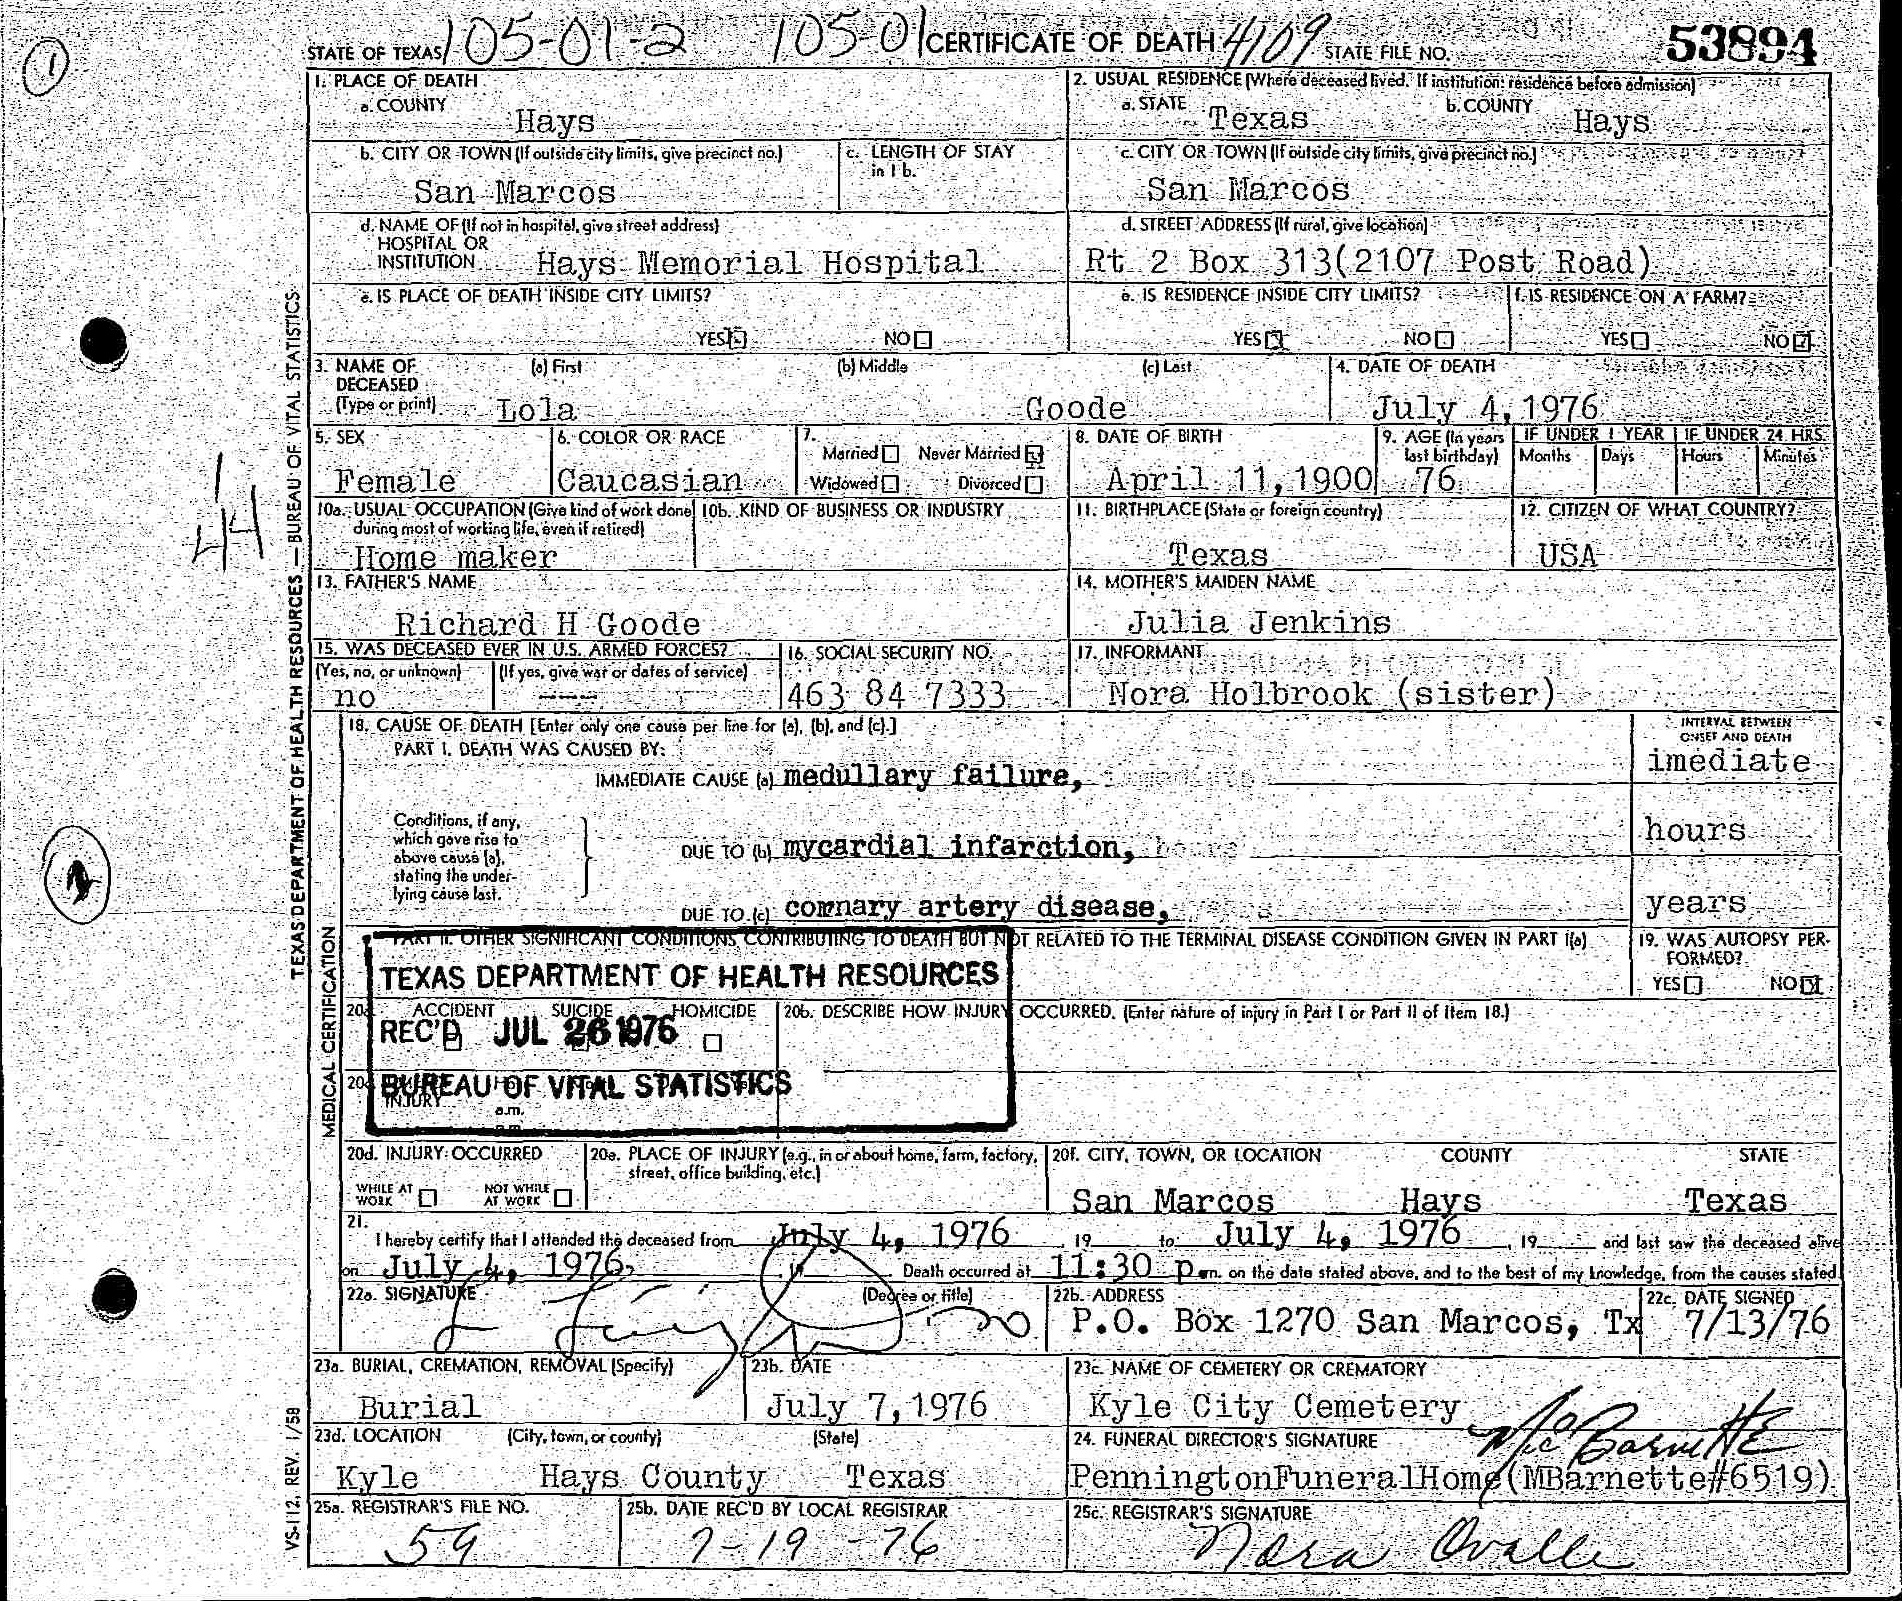 1
STATE OF TEXAS 105-01-2 105-01 CERTIFICATE OF DEATH 4109 STATE FILE NO. 53894
1. PLACE OF DEATH
a. COUNTY
Hays
2. USUAL RESIDENCE (Where deceased lived. If institution: residence before admission)
a. STATE Texas b. COUNTY Hays
b. CITY OR TOWN (If outside city limits, give precinct no.)
San Marcos
c. LENGTH OF STAY
in 1 b.
c. CITY OR TOWN (If outside city limits, give precinct no.)
San Marcos
d. NAME OF (If not in hospital, give street address)
HOSPITAL OR
INSTITUTION Hays Memorial Hospital
d. STREET ADDRESS (If rural, give location)
Rt 2 Box 313(2107 Post Road)
e. IS PLACE OF DEATH INSIDE CITY LIMITS?
YES NO
e. IS RESIDENCE INSIDE CITY LIMITS?
YES NO
f. IS RESIDENCE ON A FARM?
YES NO
3. NAME OF
DECEASED
(Type or print)
(a) First (b) Middle (c) Last
Lola Goode
4. DATE OF DEATH
July 4, 1976
5. SEX
Female
6. COLOR OR RACE
Caucasian
7.
Married Never Married
Widowed Divorced
8. DATE OF BIRTH
April 11, 1900
9. AGE (In years
last birthday)
76
IF UNDER 1 YEAR
Months Days
IF UNDER 24 HRS.
Hours Minutes
10a. USUAL OCCUPATION (Give kind of work done
during most of working life, even if retired)
Home maker
10b. KIND OF BUSINESS OR INDUSTRY
11. BIRTHPLACE (State or foreign country)
Texas
12. CITIZEN OF WHAT COUNTRY?
USA
13. FATHER'S NAME
Richard H Goode
14. MOTHER'S MAIDEN NAME
Julia Jenkins
15. WAS DECEASED EVER IN U.S. ARMED FORCES?
(Yes, no, or unknown) (If yes, give war or dates of service)
no ----
16. SOCIAL SECURITY NO.
463 84 7333
17. INFORMANT
Nora Holbrook (sister)
18. CAUSE OF DEATH [Enter only one cause per line for (a), (b), and (c).]
PART I. DEATH WAS CAUSED BY:
INTERVAL BETWEEN
ONSET AND DEATH
IMMEDIATE CAUSE (a) medullary failure, imediate
Conditions, if any,
which gave rise to
above cause (a),
stating the under-
lying cause last.
DUE TO (b) mycardial infarction, hours
DUE TO (c) cornary artery disease, years
PART II. OTHER SIGNIFICANT CONDITIONS CONTRIBUTING TO DEATH BUT NOT RELATED TO THE TERMINAL DISEASE CONDITION GIVEN IN PART I(a)
19. WAS AUTOPSY PER-
FORMED?
YES NO
TEXAS DEPARTMENT OF HEALTH RESOURCES
REC'D JUL 26 1976
BUREAU OF VITAL STATISTICS
20a. ACCIDENT SUICIDE HOMICIDE
20b. DESCRIBE HOW INJURY OCCURRED. (Enter nature of injury in Part I or Part II of Item 18.)
INJURY a.m.
20d. INJURY OCCURRED
WHILE AT
WORK
NOT WHILE
AT WORK
20e. PLACE OF INJURY (e.g., in or about home, farm, factory,
street, office building, etc.)
20f. CITY, TOWN, OR LOCATION COUNTY STATE
San Marcos Hays Texas
21.
I hereby certify that I attended the deceased from July 4, 1976, 19 to July 4, 1976, 19 and last saw the deceased alive
on July 4, 1976, 19 Death occurred at 11:30 p.m. on the date stated above, and to the best of my knowledge, from the causes stated
22a. SIGNATURE (Degree or title)
22b. ADDRESS
P.O. Box 1270 San Marcos, Tx
22c. DATE SIGNED
7/13/76
23a. BURIAL, CREMATION, REMOVAL (Specify)
Burial
23b. DATE
July 7, 1976
23c. NAME OF CEMETERY OR CREMATORY
Kyle City Cemetery
23d. LOCATION (City, town, or county) (State)
Kyle Hays County Texas
24. FUNERAL DIRECTOR'S SIGNATURE
PenningtonFuneralHome(MBarnette#6519)
25a. REGISTRAR'S FILE NO.
59
25b. DATE REC'D BY LOCAL REGISTRAR
7-19-76
25c. REGISTRAR'S SIGNATURE
Nora Ovalle
TEXAS DEPARTMENT OF HEALTH RESOURCES — BUREAU OF VITAL STATISTICS
MEDICAL CERTIFICATION
VS-112, REV. 1/58
1
44
2